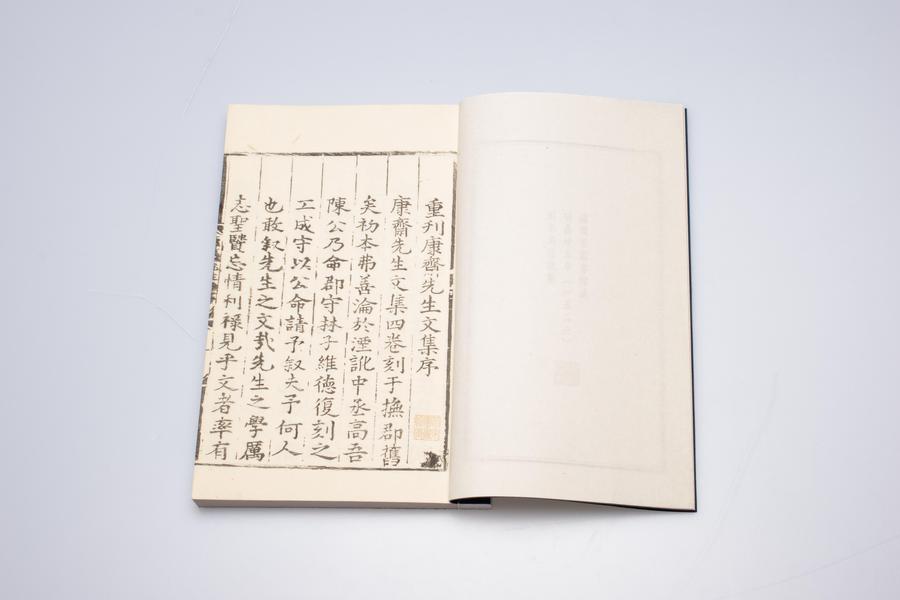 重刋康齋先生文集序
康齋先生文集四卷刻于撫郡舊
矣初本弗善淪於湮訛中丞高吾
陳公乃命郡守林子維德復刻之
工成守以公命請予叙夫予何人
也敢叙先生之文㦲先生之學厲
志聖賢忘情利祿見乎文者率有